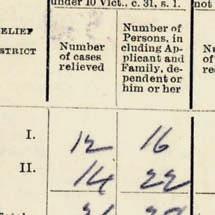 under 10 Vict., c. 31, s. 1.
not
ELIEF
STRICT
Number of cases relieved
Number of Persons, including Applicant and Family, dependent or him or her
I. 12 16
II. 14 22